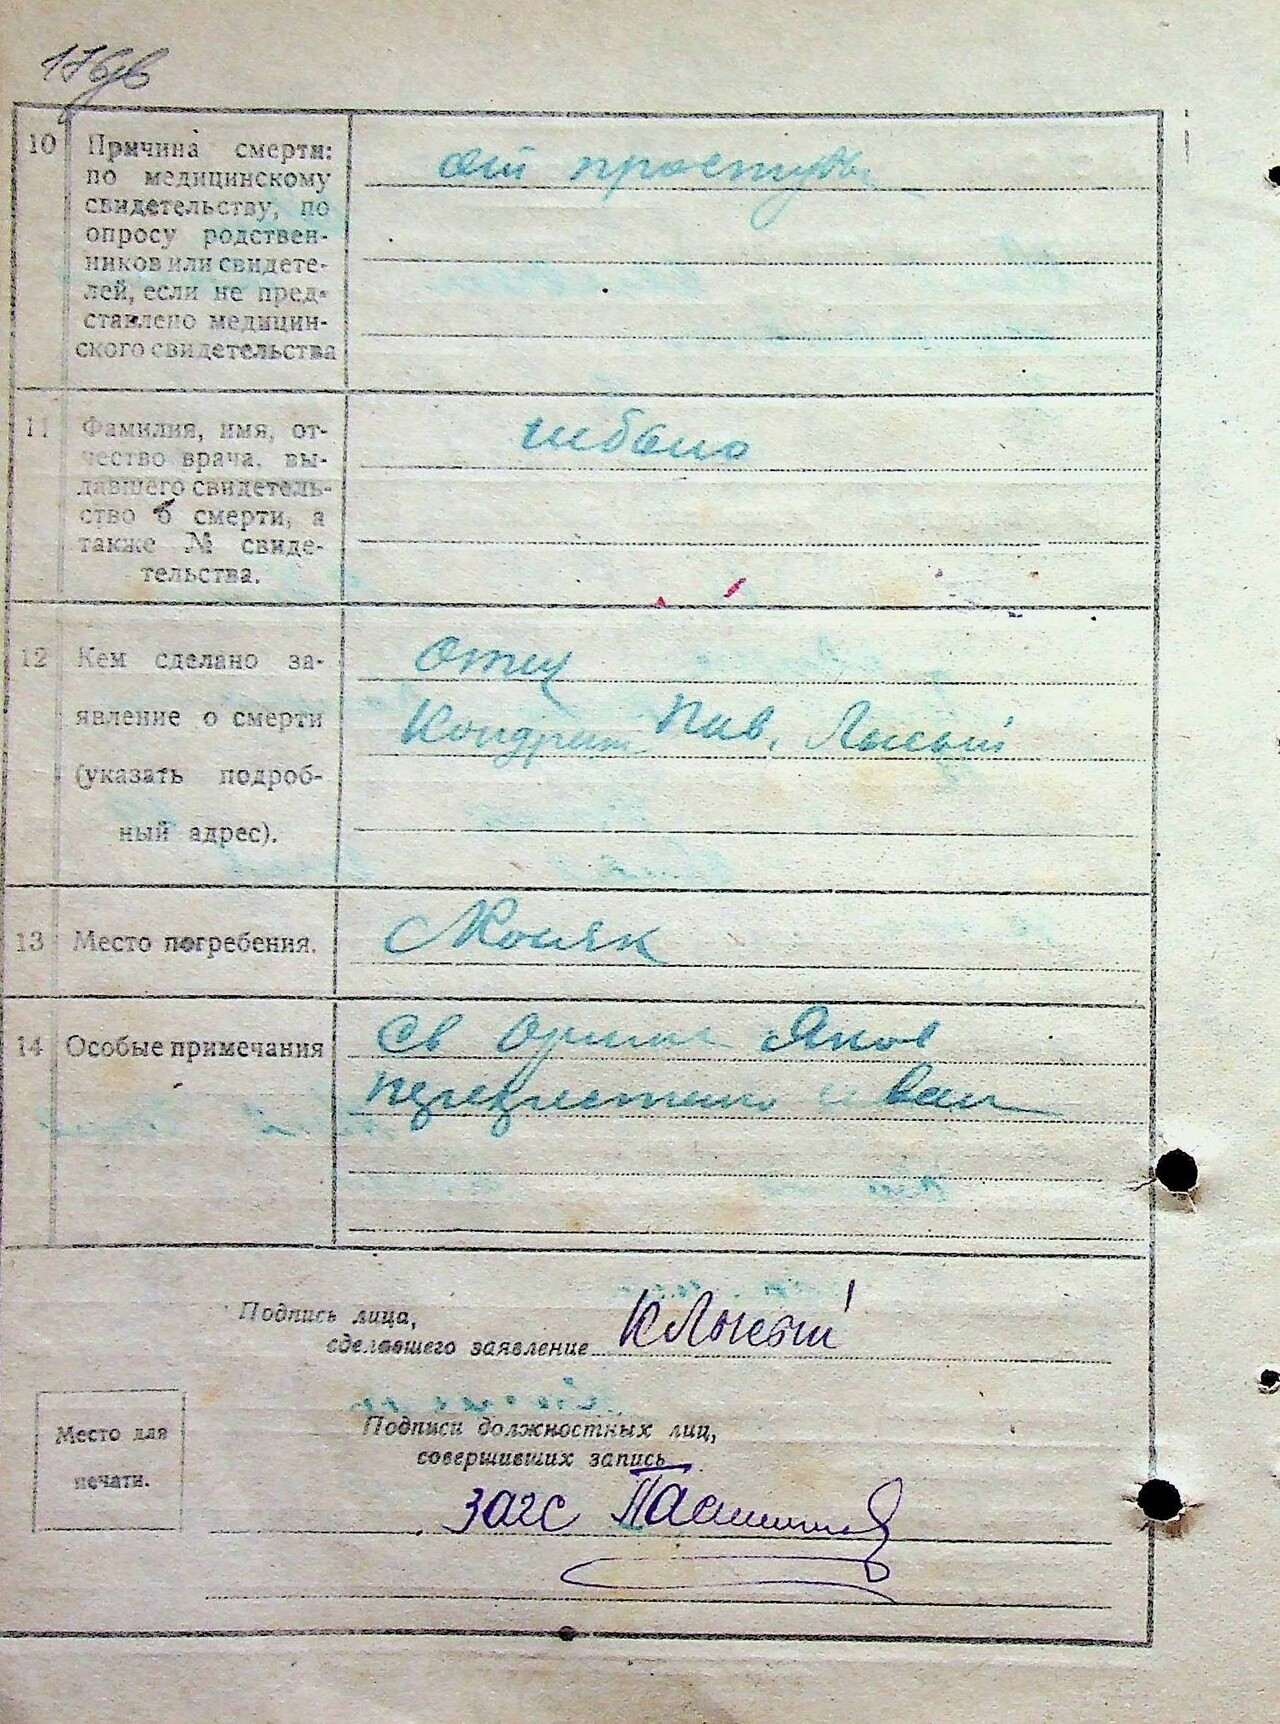 176об
10 Причина смерти: по медицинскому свидетельству, по опросу родственников или свидетелей, если не представлено медицинского свидетельства
от простуды
11 Фамилия, имя, отчество врача, выдавшего свидетельство о смерти, а также № свидетельства.
12 Кем сделано заявление о смерти (указать подробный адрес).
Отец
Кондрат Пав. Лысый
13 Место погребения.
14 Особые примечания
Св Яков
Подпись лица,
сделавшего заявление КЛысый
Место для
печати.
Подписи должностных лиц,
совершивших запись
загс